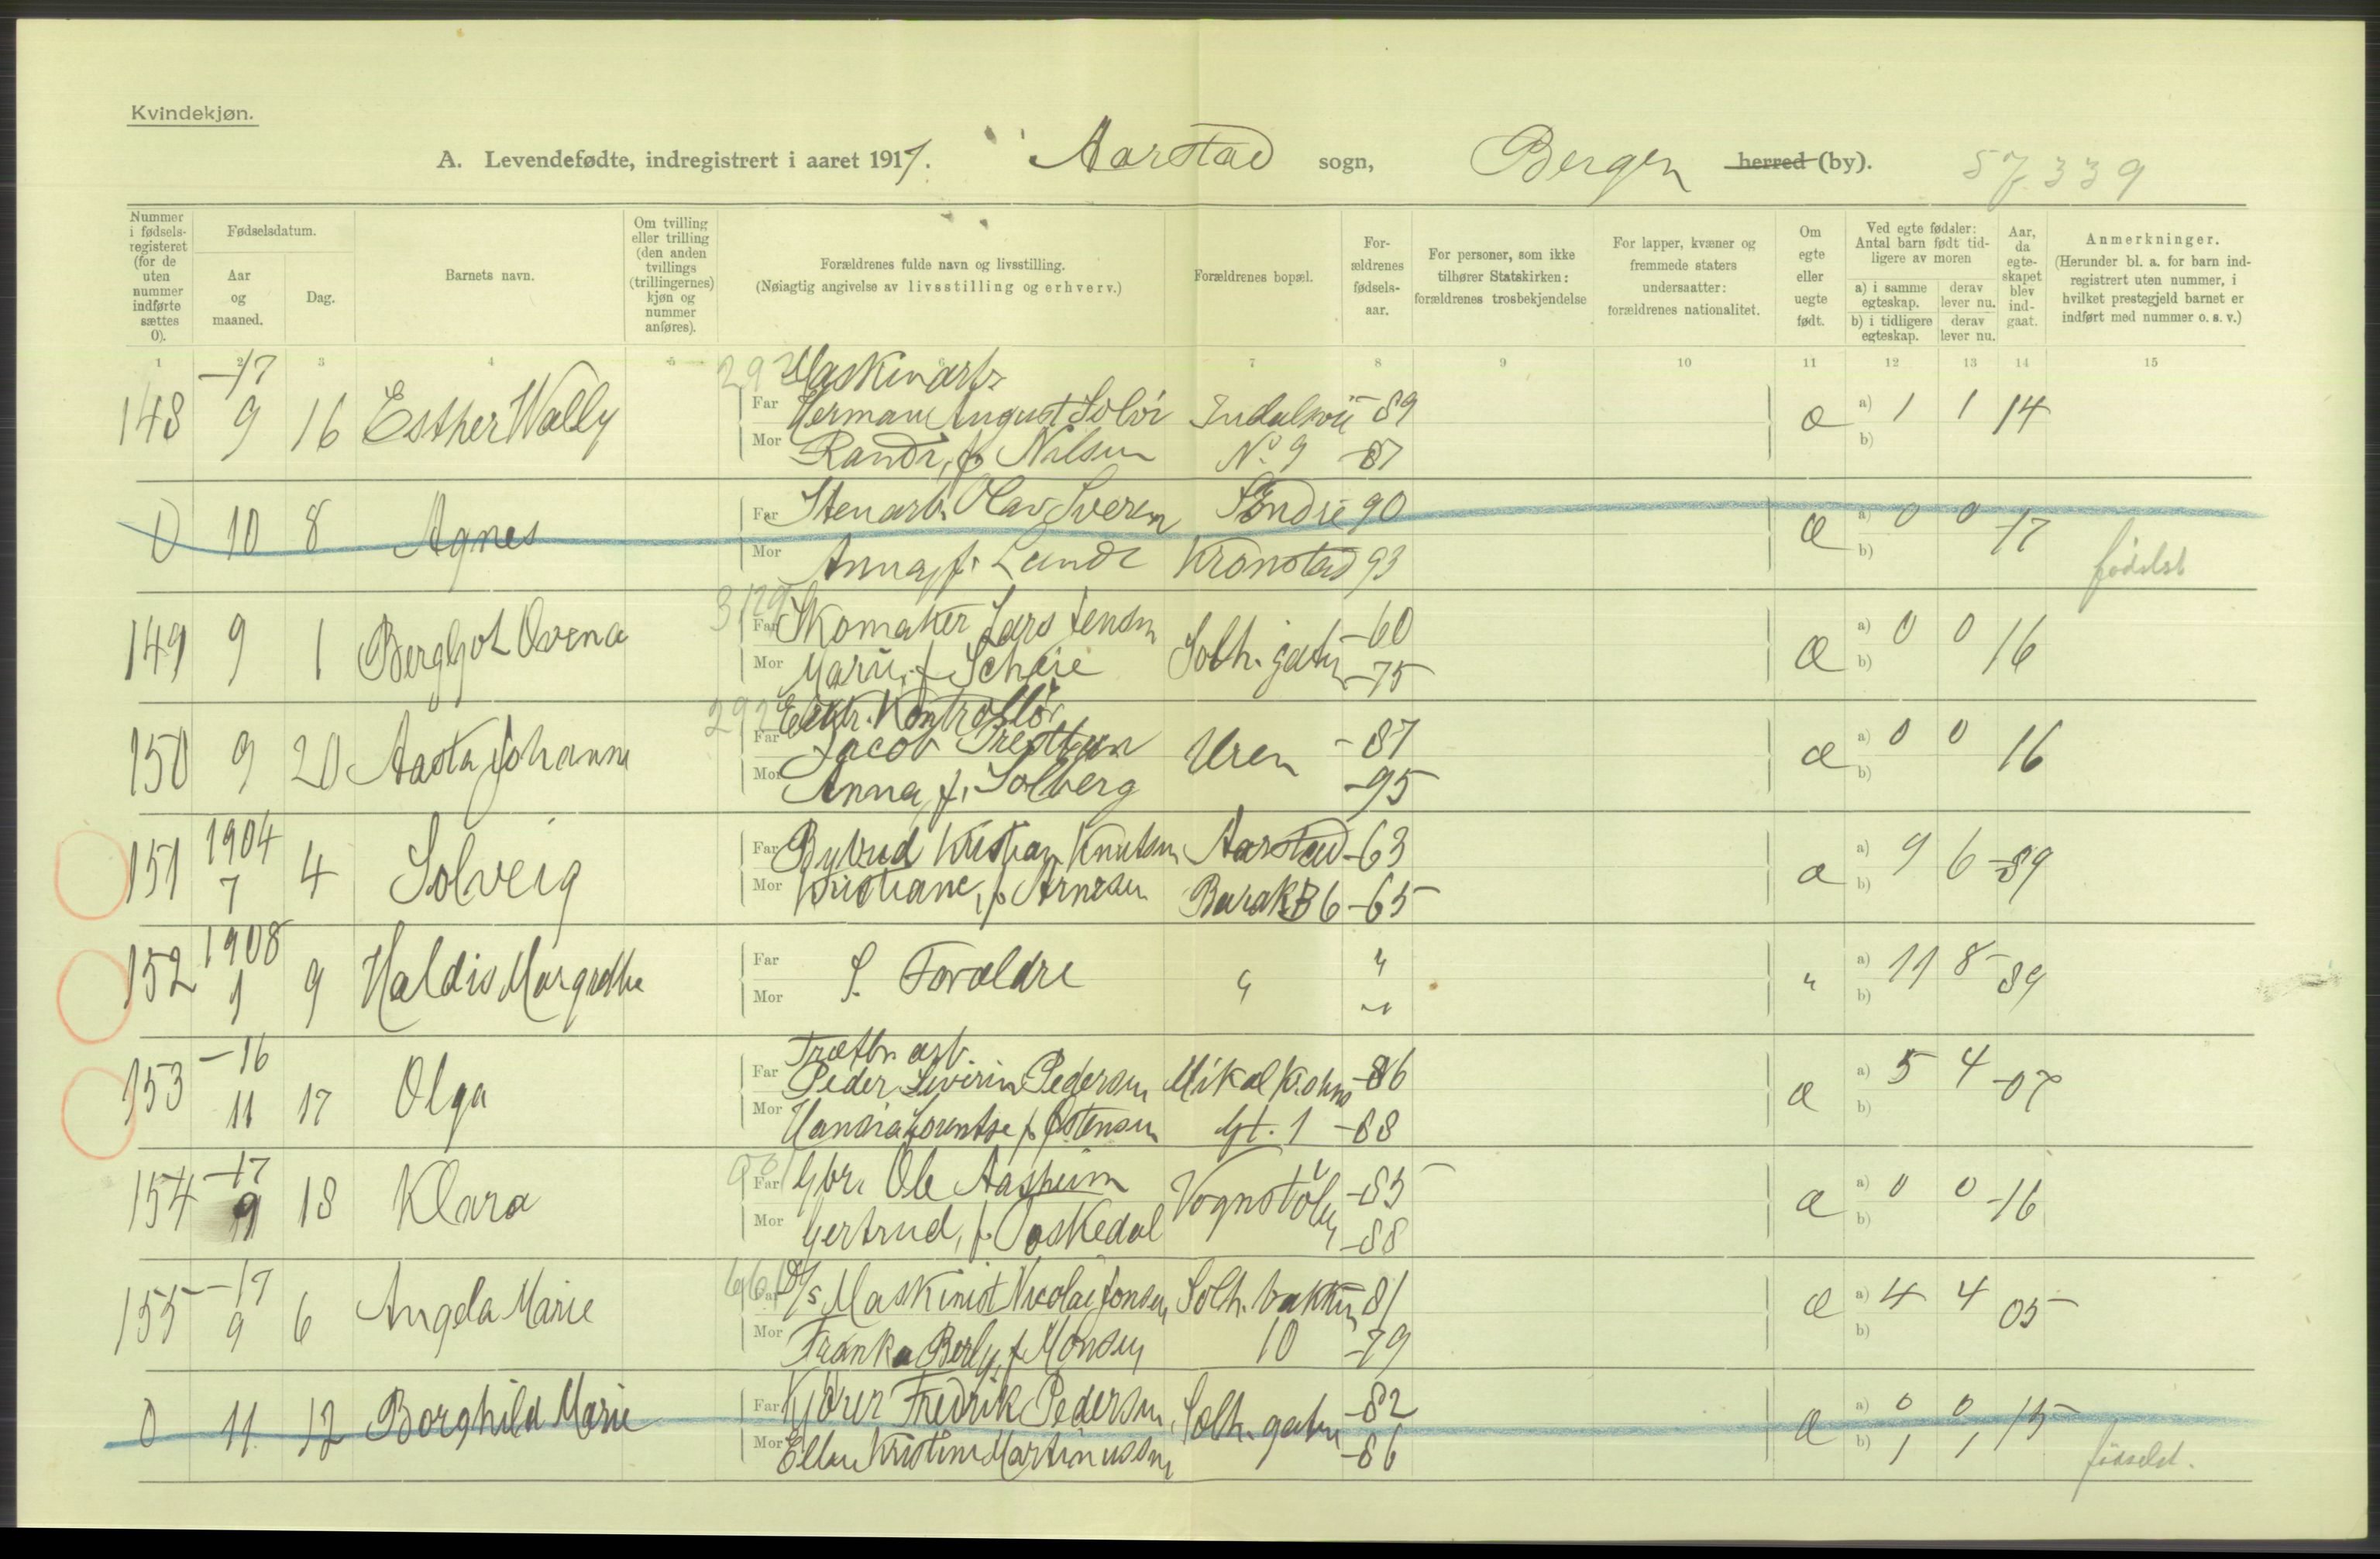 Kvindekjøn.
A. Levendefødte, indregistrert i aaret 1917. Aarstad sogn, Bergen herred (by). 57 339
Nummer i fødsels-registeret (for de uten nummer indførte sættes 0).
Fødselsdatum.
Aar og maaned.
Dag.
Barnets navn.
Om tvilling eller trilling (den anden tvillings (trillingernes) kjøn og nummer anføres).
Forældrenes fulde navn og livsstilling.
(Nøiagtig angivelse av livsstilling og erhverv.)
Forældrenes bopæl.
For-ældrenes fødsels-aar.
For personer, som ikke tilhører Statskirken: forældrenes trosbekjendelse
For lapper, kvæner og fremmede staters undersaatter: forældrenes nationalitet.
Om egte eller uegte født.
Ved egte fødsler: Antal barn født tid-ligere av moren
a) i samme egteskap. derav lever nu.
b) i tidligere egteskap. derav lever nu.
Aar, da egte-skapet blev ind-gaat.
Anmerkninger.
(Herunder bl. a. for barn ind-registrert uten nummer, i hvilket prestegjeld barnet er indført med nummer o. s. v.)
1 2 3 4 5 6 7 8 9 10 11 12 13 14 15
-17 Maskinarb.
148 9 16 Esther Wally Far Herman August Solör -89 æ a) 1 1 14
Mor Randi, f. Nilsen No. 9 -87 b)
0 10 8 Agnes Far Stenarb. Olav Sveren Söndre 90 æ a) 0 0 -17
Mor Anna, f. Lunde Kronstad 93 b) fødselst
149 9 1 Bergljot Ovena Far Skomaker Lars Jensen Solh. gaten -60 æ a) 0 0 16
Mor Marie, f. Scheie -75 b)
Elektr. Kontrollör
150 9 20 Aasta Johanne Far Jacob Uren -87 æ a) 0 0 16
Mor Anna, f. Solberg -95 b)
151 1904 7 4 Solveig Far Bybud Kristian Knutsen Aarstad -63 æ a) 9 6 -89
Mor Kristiane, f. Arnesen Barak B 6 -65 b)
152 1908 1 9 Haldis Margrethe Far S. Forældre " " " a) 11 8 -89
Mor " b)
-16 Trætbr. arb.
153 11 17 Olga Far Peder Severin Pedersen Mikal Krohns -86 æ a) 5 4 -07
Mor Lorentse f. Østensen Gt. 1 -88 b)
154 -17 9 18 Klara Far Gbr. Ole Aasheim Vognstölen -83 æ a) 0 0 -16
Mor Gertrud, f. Paaskedal -88 b)
155 -17 9 6 Angela Marie Far D/s Maskinist Nicolai Jonsen Solh. bakken 81 æ a) 4 4 05
Mor f. Monsen 10 -79 b)
0 11 12 Borghild Marie Far Kjörer Fredrik Pedersen, Solh. gaten -82 æ a) 0 0 15
Mor Ellen Kristine Martinussen -86 b) 1 1 fødselst.